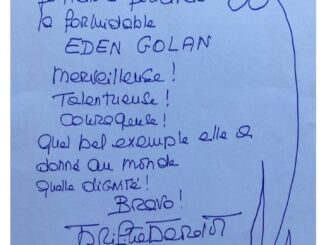 la formidable
EDEN GOLAN
Merveilleuse !
Talentueuse !
Courageuse !
Quel bel exemple elle a
donné au monde
quelle DIGNITÉ !
BRAVO !
Brigitte Bardot